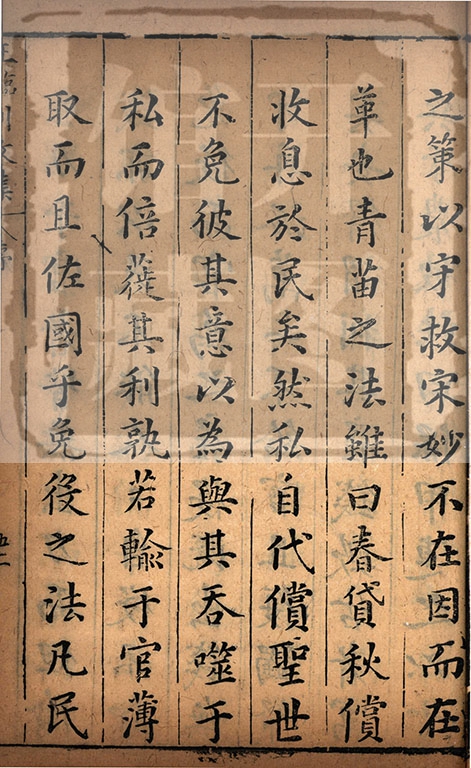 之策以守救宋妙不在因而在
革也青苗之法雖曰春貸秋償
收息於民矣然私自代償聖世
不免彼其意以為與其吞噬于
私而倍蓰其利孰若輸于官薄
取而且佐國乎免役之法凡民